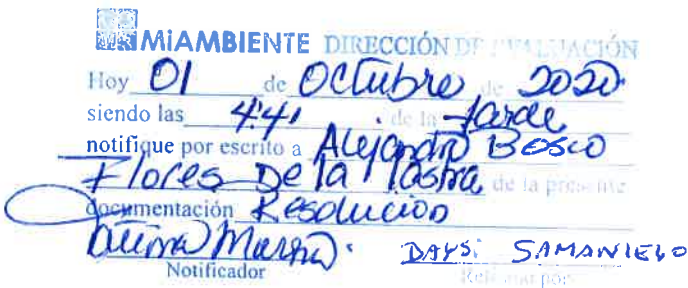 MiAMBIENTE DIRECCIÓN DE EVALUACIÓN
Hoy 01 de Octubre de 2020
siendo las 4:41 de la tarde
notifique por escrito a Alejandro Bosco
Flores De la de la presente
documentación Resolución
DAYSI SAMANIEGO
Notificador por